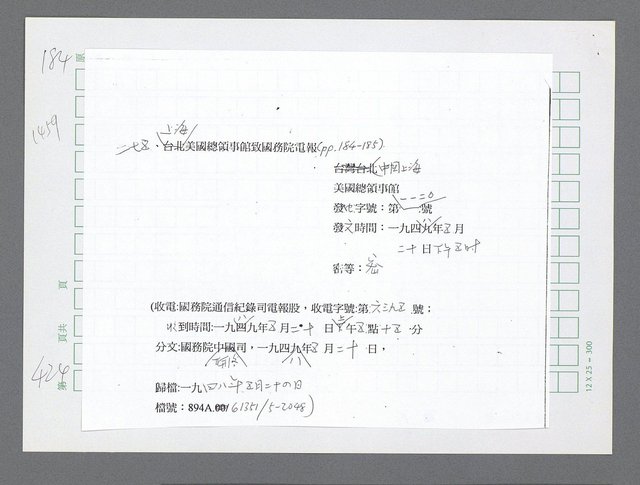 184
1459
上海
二七五、台北美國總領事館致國務院電報(pp.184-185).
台灣台北(中国上海
美國總領事館
一一二〇
發电字號：第 號
發文時間：一九四九年五月
八
二十日下午五时
密等：密
(收電:國務院通信紀錄司電報股，收電字號:第六三九五號；
收到時間:一九四九年五月二十日上午五點十五分
分文:國務院中國司，一九四九年五月二十日，
八
歸檔:一九四八年五月二十四日
檔號：894A.00/61351/5-2048)
原
第 頁共 頁
424
12 X 25 = 300